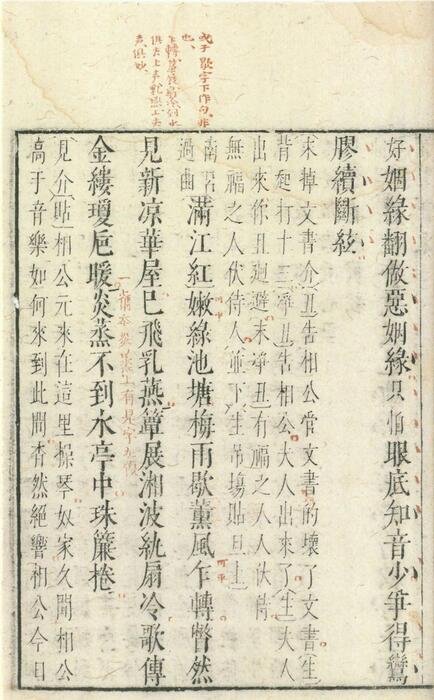 或于歇字下作句非
也
好姻緣翻做惡姻緣只怕眼底知音少爭得鸞
膠續斷絃
末掉文書介丑告相公管文書的壞了文書生
背起打十三淨丑告相公夫人出來了生夫人
出來你且迴避末淨丑有福之人人伏侍
無福之人伏侍人並下生吊場貼旦上
南呂過曲滿江紅嫩綠池塘梅雨歇薰風乍轉瞥然
見新凉華屋已飛乳燕簟展湘波紈扇冷歌傳
金縷瓊卮暖炎蒸不到水亭中珠簾捲
見介貼相公元來在這里操琴奴家久聞相公
高于音樂如何來到此間杳然絕響相公今日